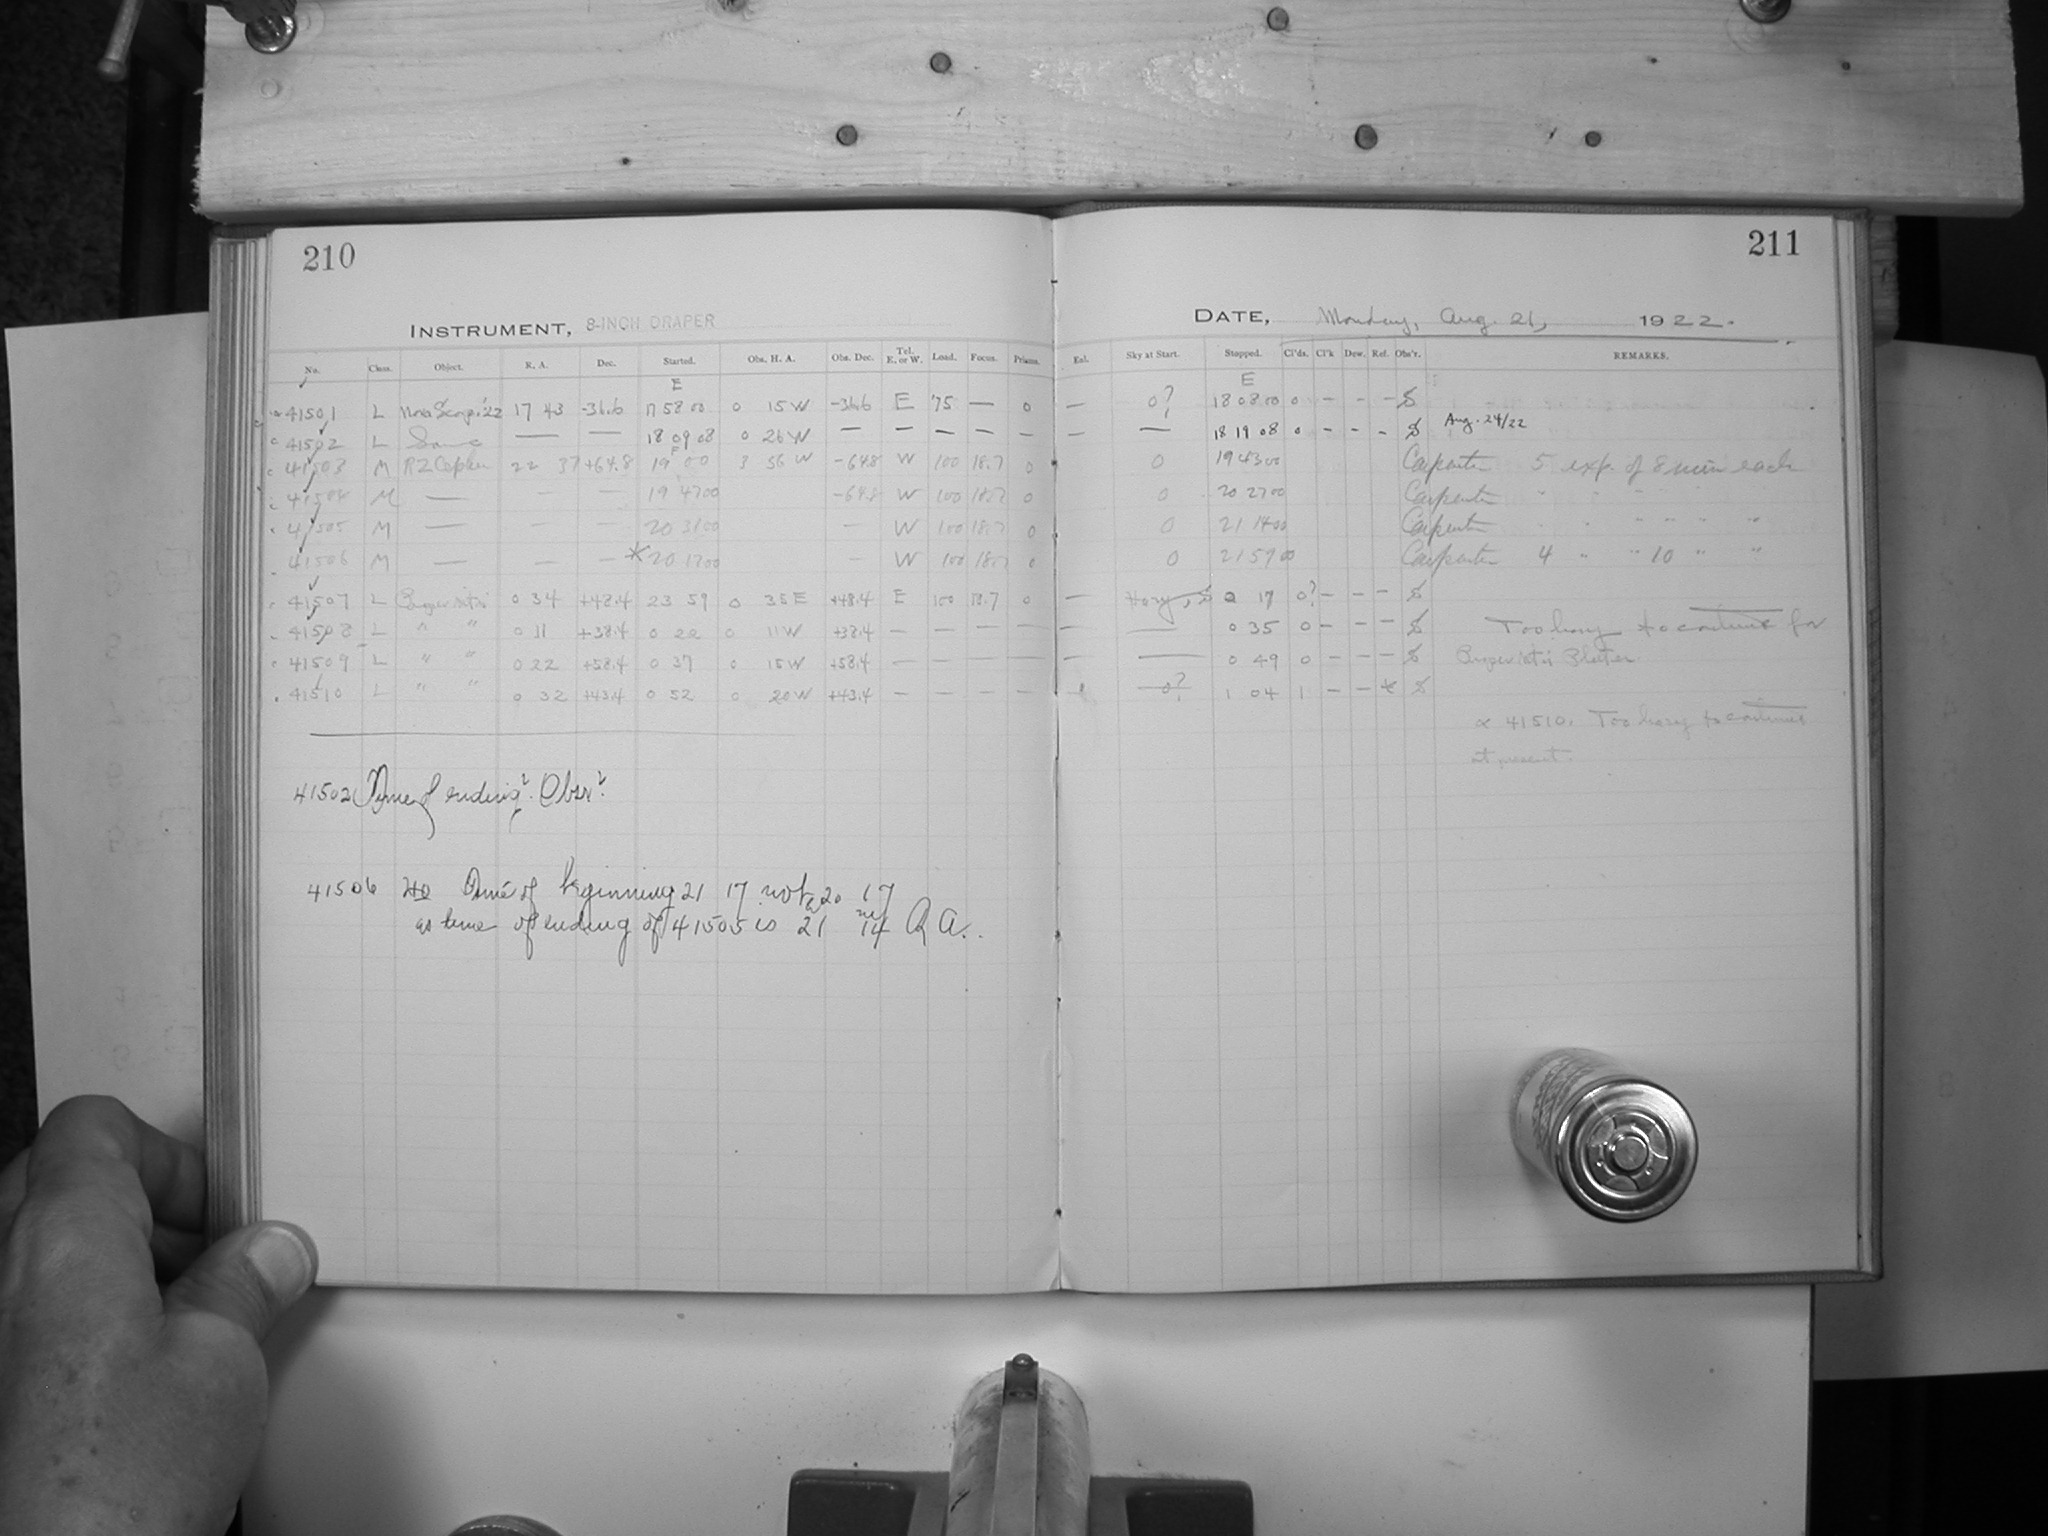 210
211
INSTRUMENT, 8-INCH DRAPER
DATE, Monday, Aug. 21, 1922.
No. Class. Object. R. A. Dec. Started. Obs. H. A. Obs. Dec. Tel. E. or W. Load. Focus. Prisms. Eal. Sky at Start. Stopped. Cl'ds. Cl'k Dew. Ref. Obs'r. REMARKS.
E E
41501 L Nova Scorp. '22 17 43 -36.6 17 58 00 0 15 W -36.6 E 75 — 0 — 0? 18 08 00 0 - - - S
41502 L Same — — 18 09 08 0 26 W — — — — — — — 18 19 08 0 - - - S Aug. 24/22
41503 M RZ Cephei 22 37 +64.8 19 00 3 56 W -64.8 W 100 18.7 0 0 19 43 00 Carpenter 5 exp. of 8 min each
41504 M — — — 19 47 00 -64.8 W 100 18.7 0 0 20 27 00 Carpenter " " "
41505 M — — — 20 31 00 — W 100 18.7 0 0 21 14 00 Carpenter " " " " " "
41506 M — — — *20 17 00 — W 100 18.7 0 0 21 59 00 Carpenter 4 " " 10 " "
41507 L 0 34 +48.4 23 59 0 35 E +48.4 E 100 18.7 0 — Hazy, S 0 17 0? - - - S
41508 L " " 0 11 +38.4 0 22 0 11 W +38.4 — — — — — — 0 35 0 - - - S Too hazy to continue for
41509 L " " 0 22 +58.4 0 37 0 15 W +58.4 — — — — — — 0 49 0 - - - S
41510 L " " 0 32 +43.4 0 52 0 20 W +43.4 — — — — 0? 1 04 1 - - * S
41510. Too hazy to continue
at present.
41502 Time of ending? Obsr?
41506 Time of beginning 21 17 not 20 17
as time of ending of 41505 is 21 14